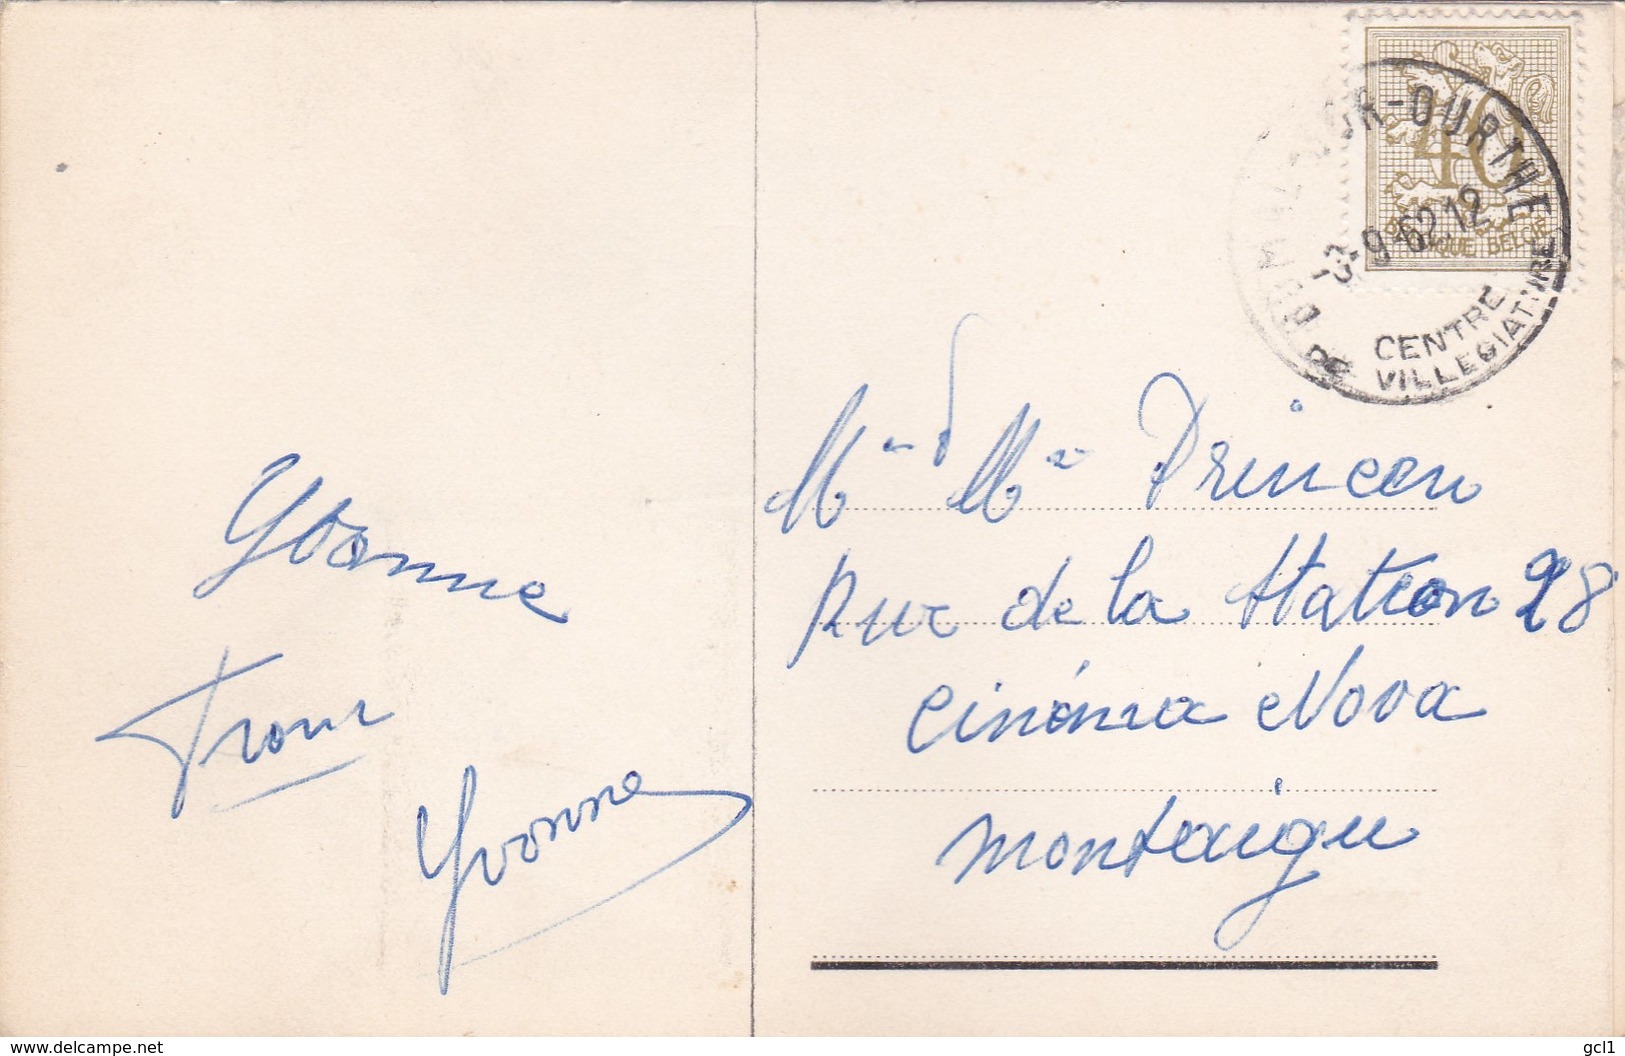 SUR-OURTHE
-9-62.12
CENTRE
DE VILLEGIATURE
40
BELGIQUE BELGIE
Yvonne
Yvonne
Mr Mme
Rue de la Station 28
Cinéma Nova
Montaigu
www.delcampe.net
gcl1